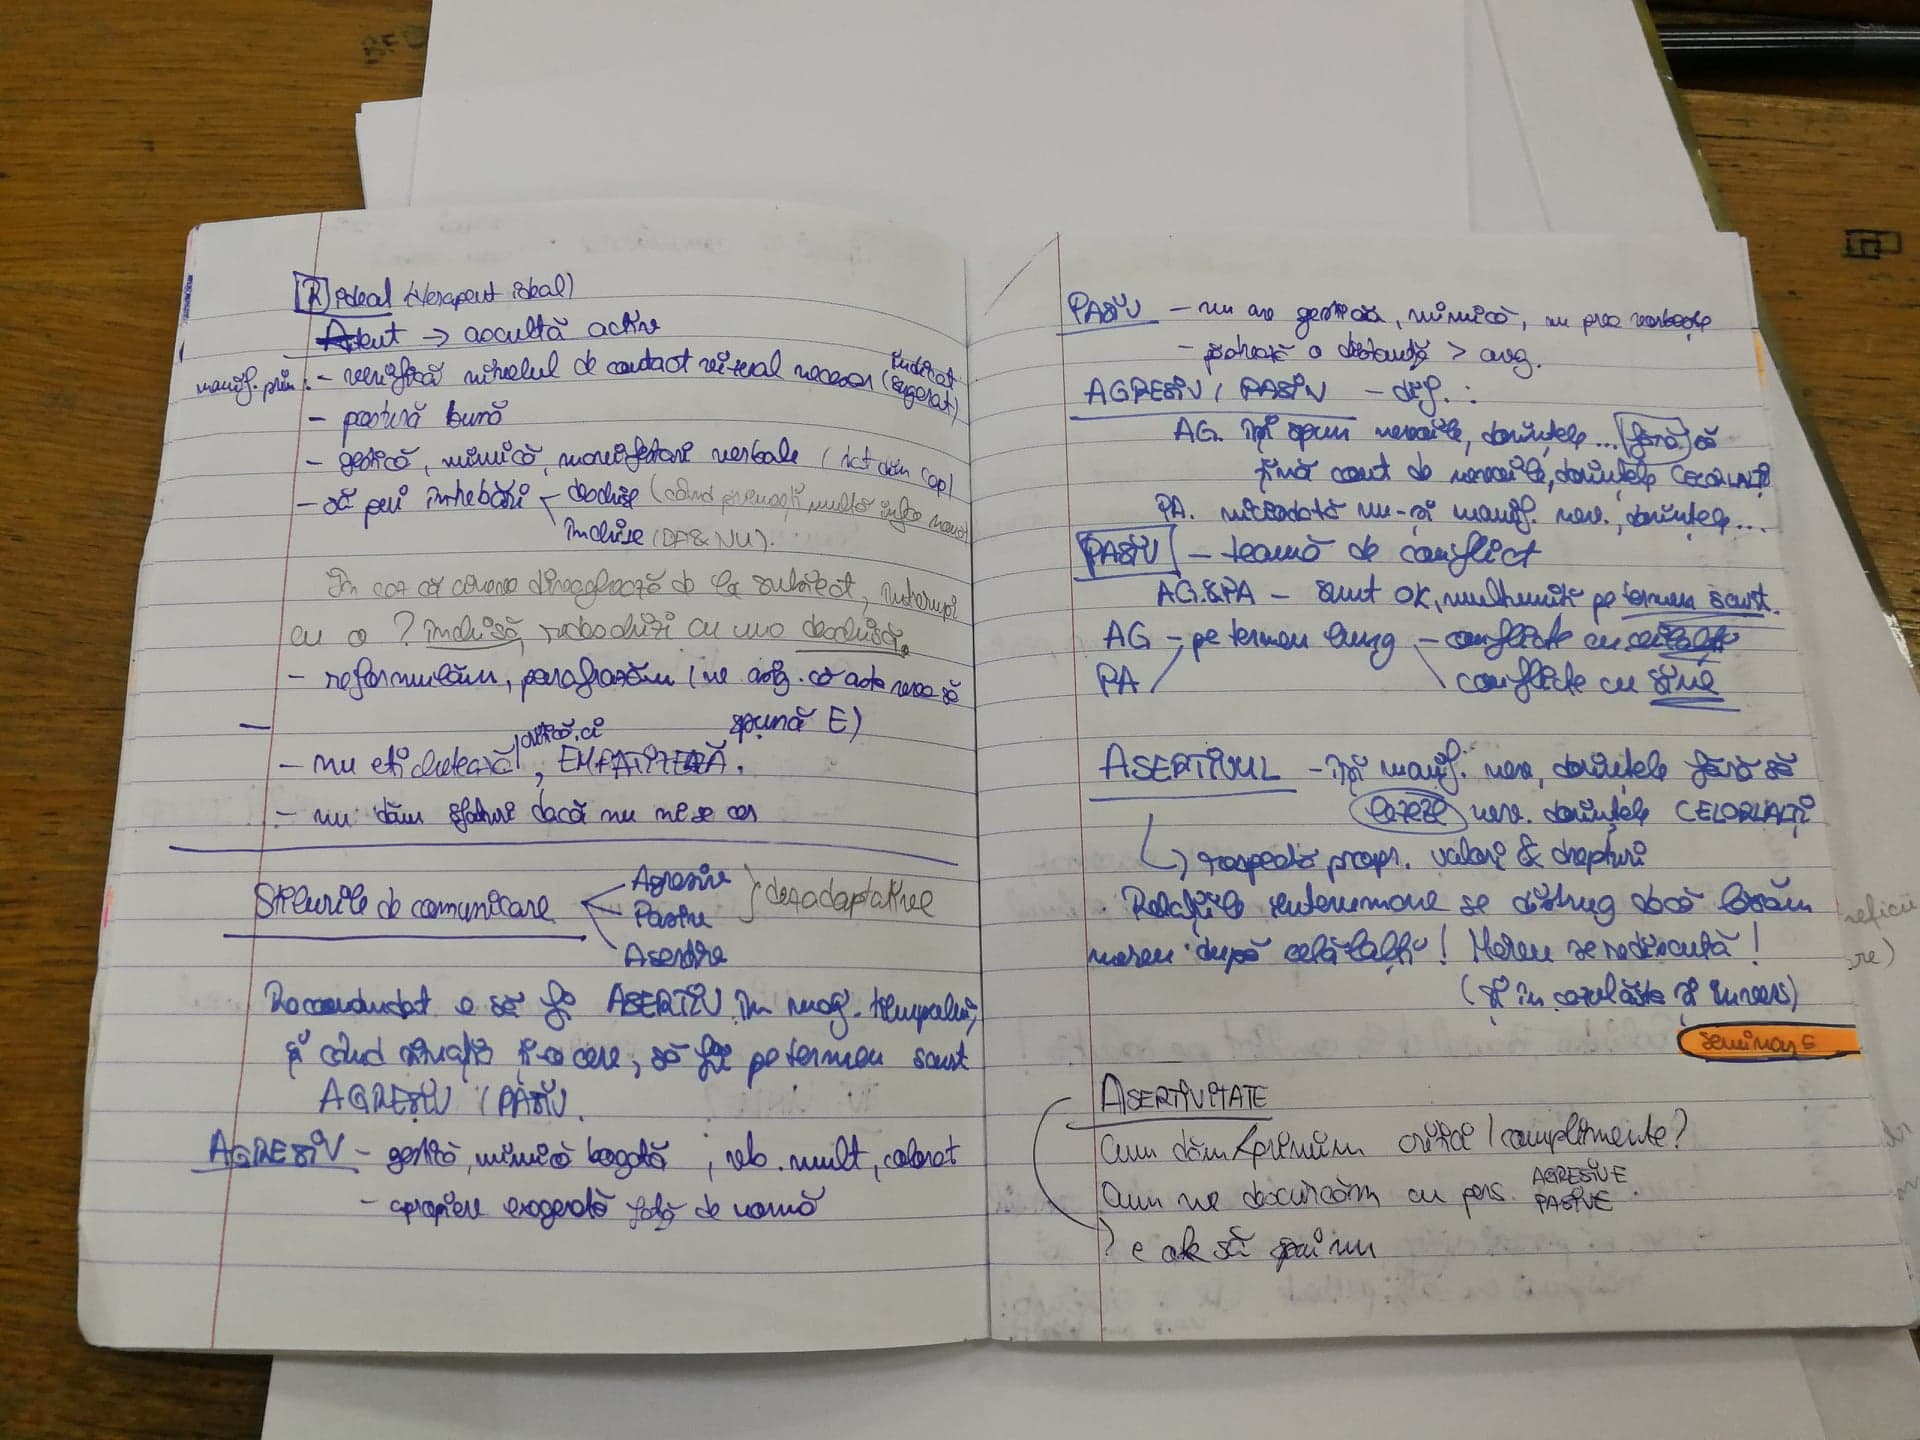 R ideal (terapeut ideal)
Atent → ascultă activ
manif. prin: - verifică nivelul de contact vizual necesar (indicat / sugerat)
- postură bună
- gestică, mimică, manifestări verbale ( dat din cap)
- să pui întrebări deschise (când multă info
închise (DA & NU).
În caz că de la subiect, întrerupi
cu o ? închisă, redeschizi cu una deschisă.
- reformulăm, parafrazăm (ne asig. că asta vrea să
spună E)
- nu etichetează / critică, ci, EMPATIZEAZĂ.
- nu dăm sfaturi dacă nu ni se cer
Stilurile de comunicare
Agresiv
Pasiv
dezadaptative
Asertiv
Recomandat e să fi ASERTIV în maj. timpului,
și când situația ți-o cere, să fii pe termen scurt
AGRESIV / PASIV.
AGRESIV - gestică, mimică bogată, vb. mult, colorat
- apropiere exagerată față de normă
PASIV - nu are gestică, mimică, nu prea vorbește
- păstrează o distanță > avg.
AGRESIV / PASIV - dif. :
AG. își spun nevoile, dorințele ... fără să
țină cont de nevoile, dorințele CELORLALȚI
PA. niciodată nu-și manif. nev., dorințele ...
PASIV - teamă de conflict
AG. & PA - sunt OK, mulțumiți pe termen scurt.
AG - pe termen lung - conflicte cu ceilalți
PA conflicte cu sine
ASERTIVUL - își manif. nev, dorințele fără să
lezeze nev. dorințele CELORLALȚI
↳ respectă propr. valori & drepturi
Relațiile interumane se distrug dacă lăsăm
mereu după celălalt! Mereu se rediscută!
(și în și invers)
Seminar 5
ASERTIVITATE
Cum dăm / primim critici / complimente?
Cum ne descurcăm cu pers. AGRESIVE
PASIVE.
? e ok să spui nu